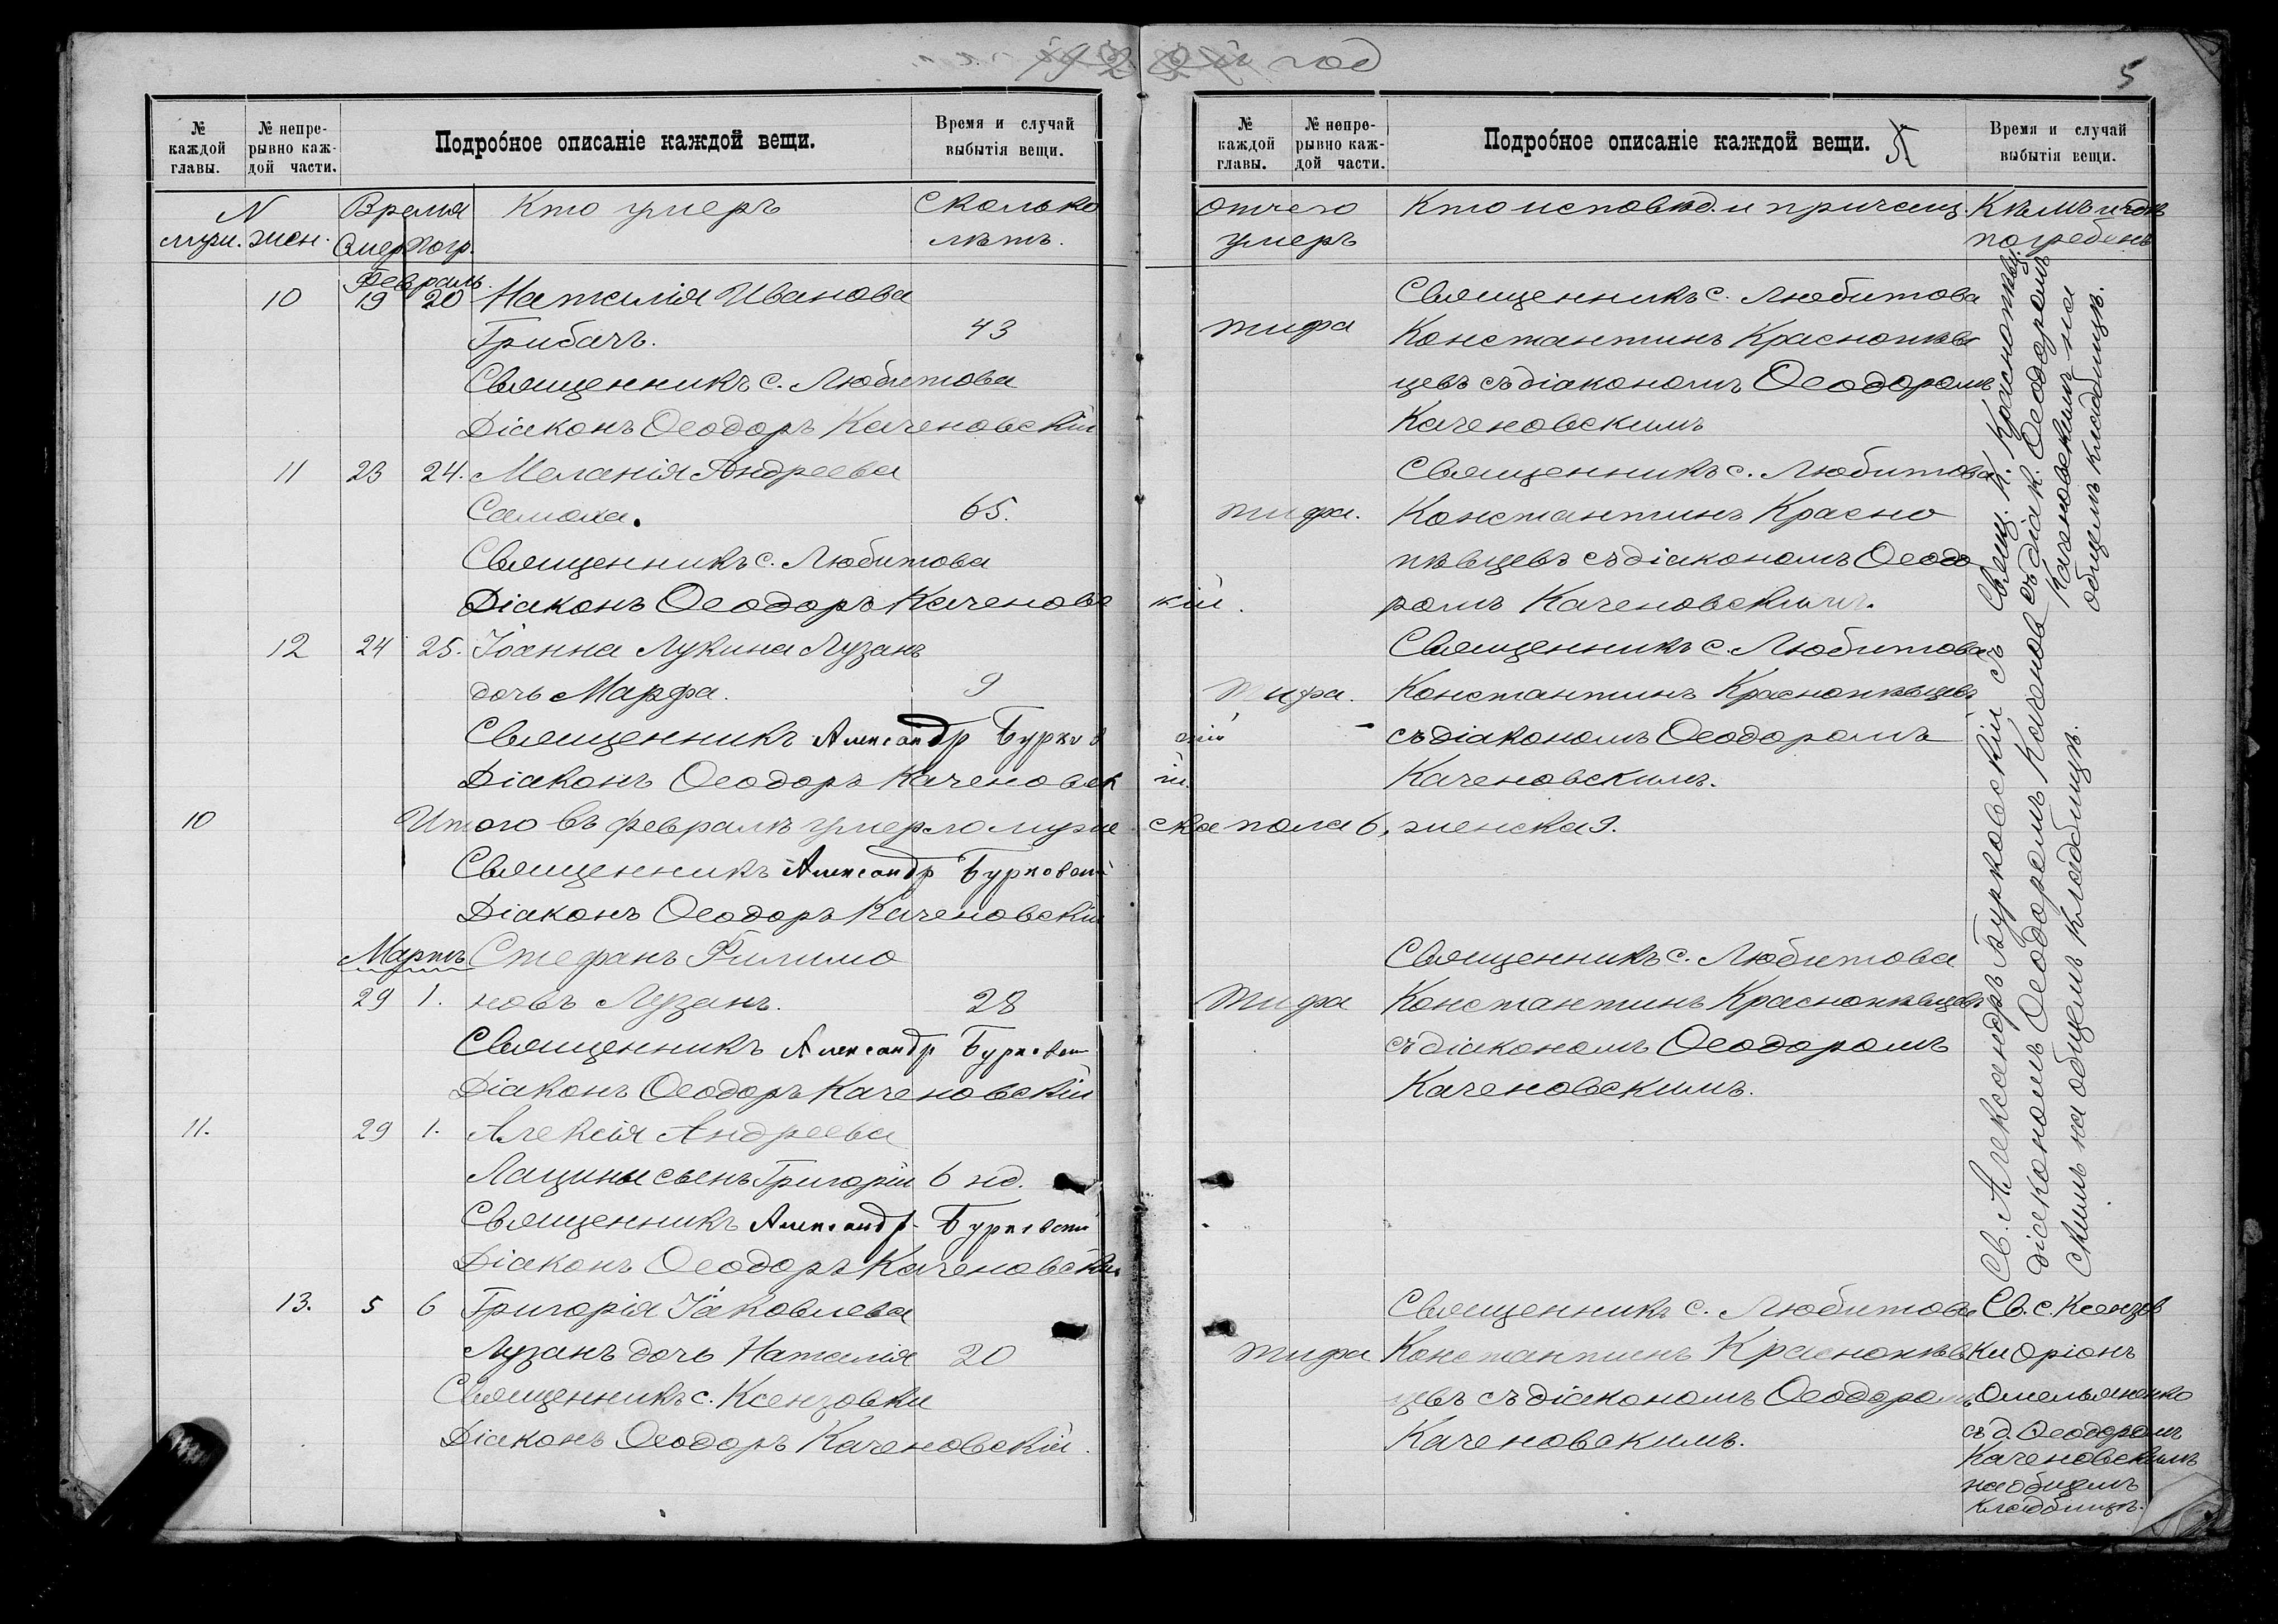 1920 й год
5
№ каждой главы.
№ непрерывно каждой части.
Подробное описаніе каждой вещи.
Время и случай выбытія вещи.
N
муж. жен.
Время
Смер. Погр.
Кто умеръ
Сколько лѣтъ.
Февраль.
10 19 20 Наталія Иванова
Грибачъ. 43
Священникъ с. Любитова
Діаконъ Ѳеодоръ Каченовскій
11 23 24. Меланія Андреева
Самоха. 65.
Священникъ с. Любитова
Діаконъ Ѳеодоръ Каченовскій.
12 24 25. Іоанна Лукина Лузанъ
дочь Марфа. 9
Священникъ Александр Бурковскій
Діаконъ Ѳеодоръ Каченовскій.
10 Итого въ февралѣ умерло мужеска пола 6, женска 9.
Священникъ Александр Бурковскій
Діаконъ Ѳеодоръ Каченовскій
Мартъ Стефанъ Филимо
29 1. новъ Лузанъ. 28
Священникъ Александр Бурковскій
Діаконъ Ѳеодоръ Каченовскій
11. 29 1. Алексія Андреева
Лацины сынъ Григорій 6 нд.
Священникъ Александр Бурковскій
Діаконъ Ѳеодоръ Каченовскій
13. 5 6 Григорія Іаковлева
Лузанъ дочь Наталія 20
Священникъ с. Ксензовки
Діаконъ Ѳеодоръ Каченовскій.
№ каждой главы.
№ непрерывно каждой части.
Подробное описаніе каждой вещи. 5
Время и случай выбытія вещи.
Отчего умеръ
Кто исповѣд. и причащ.
Кѣмъ и гдѣ погребенъ
Священникъ с. Любитова
тифа Константинъ Краснопѣв
цевъ съ діакономъ Ѳеодоромъ
Каченовскимъ
Священникъ с. Любитова
тифа. Константинъ Красно
пѣвцевъ съ діакономъ Ѳеодо
ромъ Каченовскимъ.
Священникъ с. Любитова
тифа. Константинъ Краснопѣвцевъ
съ діакономъ Ѳеодоромъ
Каченовскимъ.
Священникъ с. Любитова
тифа Константинъ Краснопѣвцевъ
съ діакономъ Ѳеодоромъ
Каченовскимъ.
Священникъ с. Любитова
тифа Константинъ Краснопѣв
цевъ съ діакономъ Ѳеодоромъ
Каченовскимъ.
Свящ. К. Краснопѣвц.
съ діак. Ѳеодоромъ
Каченовскимъ на
общемъ кладбищѣ.
Св. Александръ Бурковскій съ
діакономъ Ѳеодоромъ Каченов
скимъ на общемъ кладбищѣ.
Св. с. Ксензов
ки Оріонъ
Омельяненко
съ д. Ѳеодоромъ
Каченовскимъ
на общемъ
кладбищѣ.